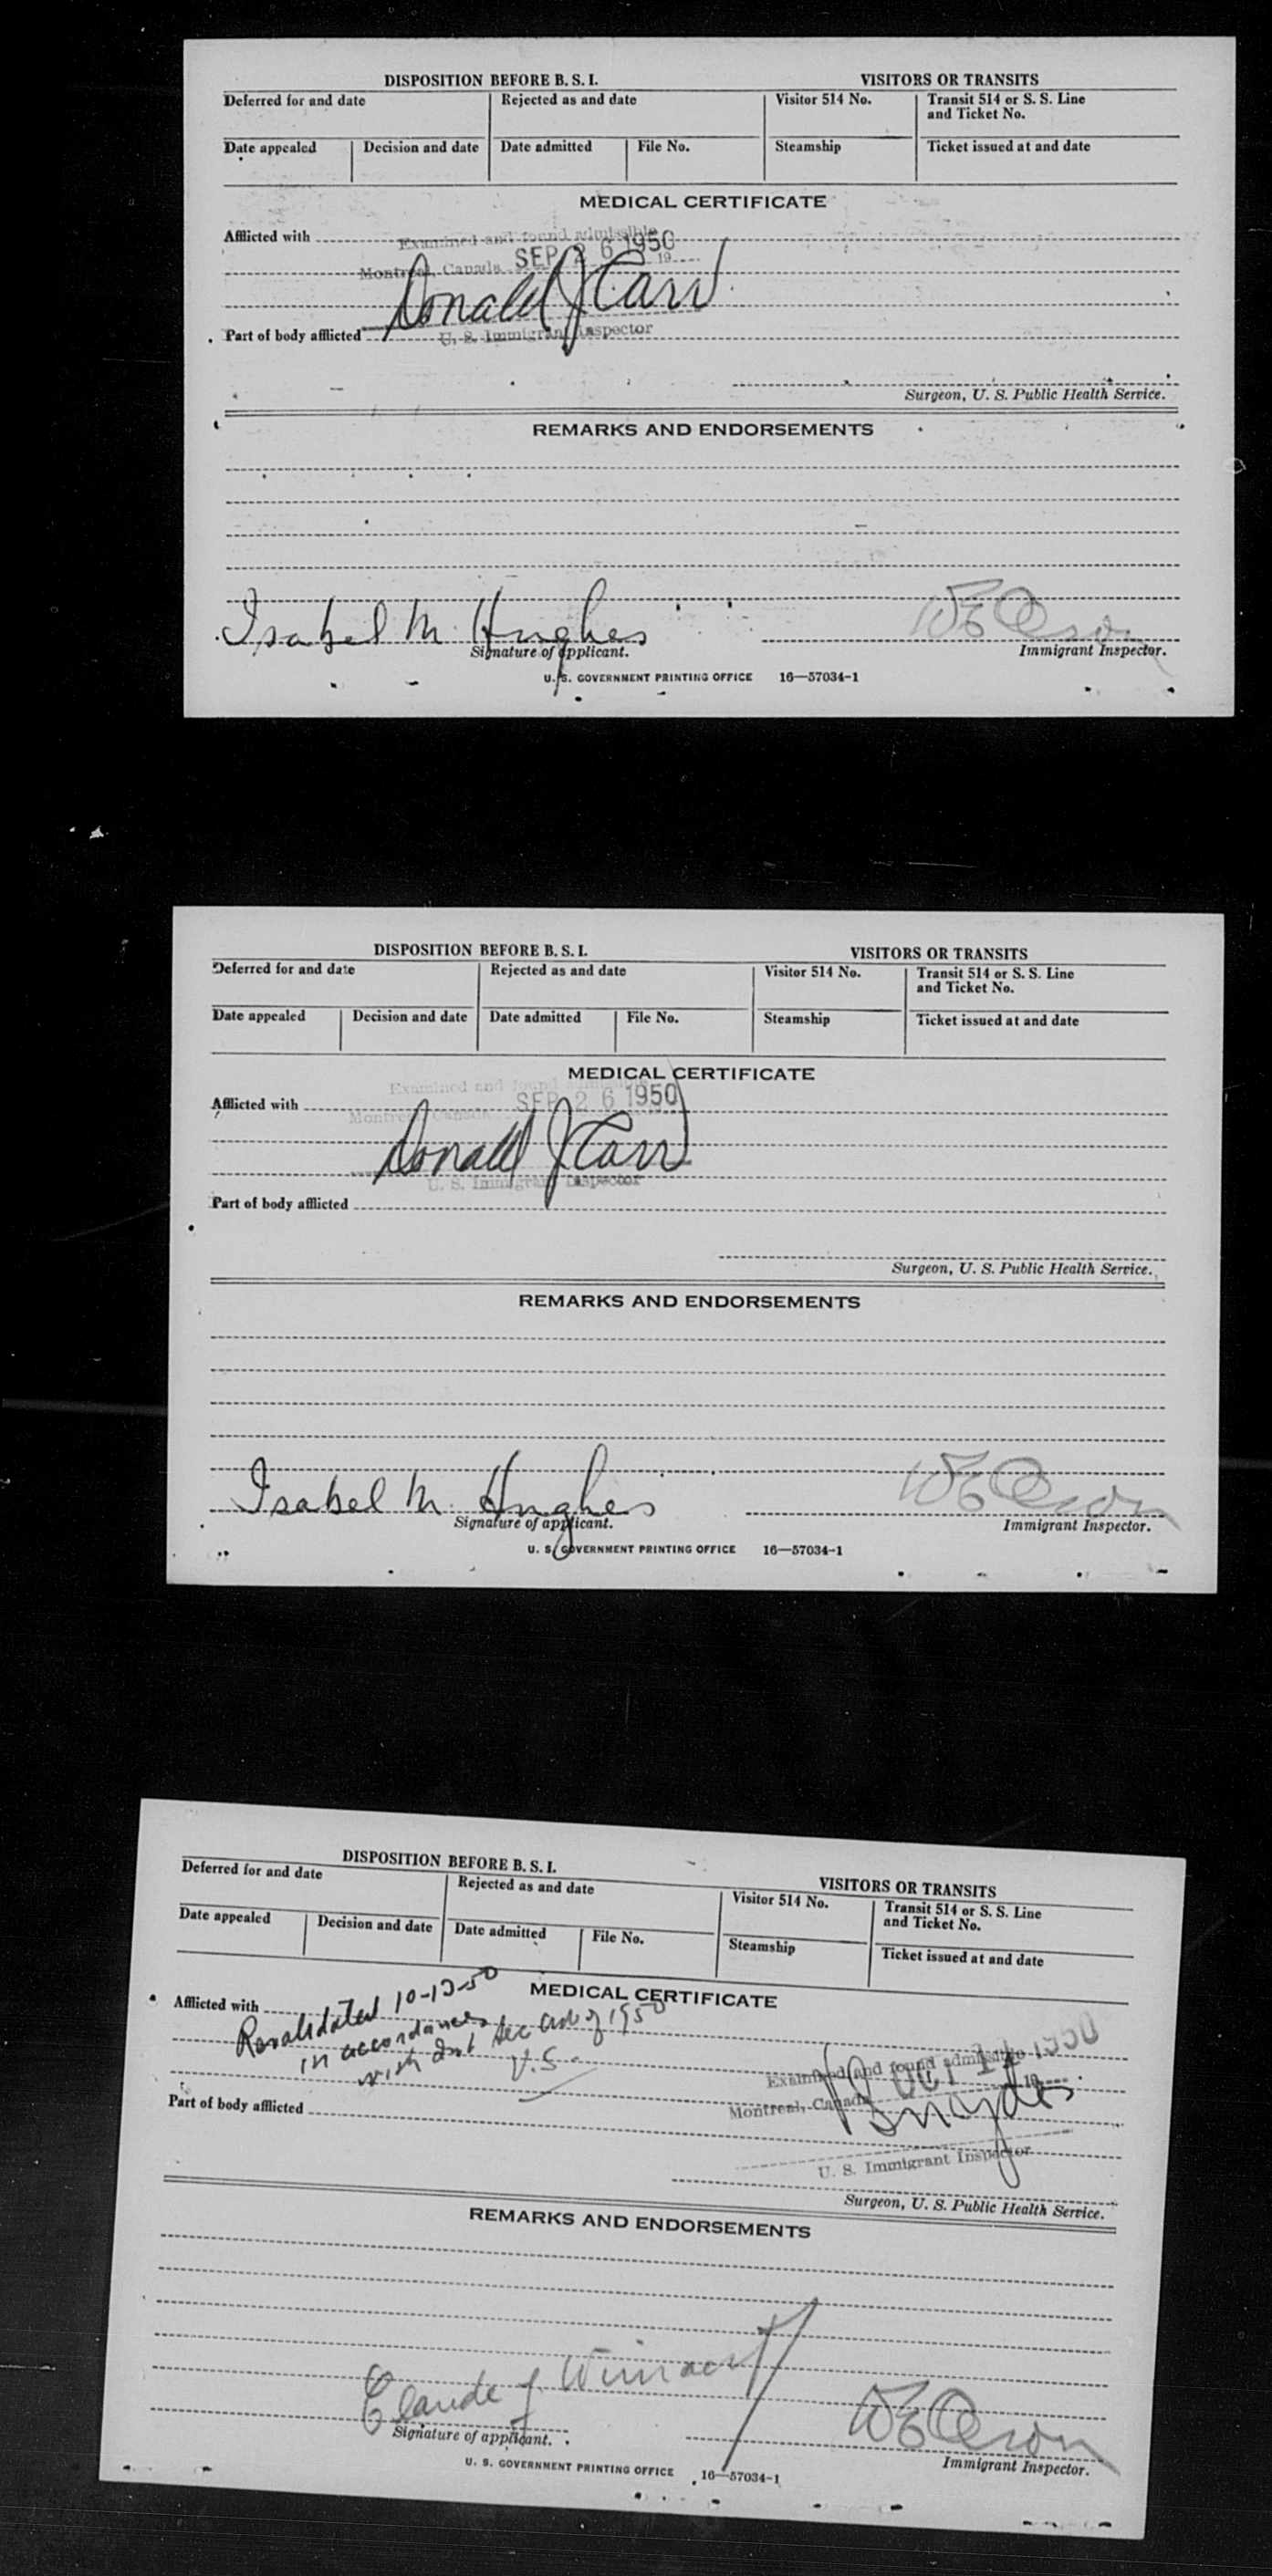 DISPOSITION BEFORE B. S. I. VISITORS OR TRANSITS
Deferred for and date Rejected as and date Visitor 514 No. Transit 514 or S. S. Line
and Ticket No.
Date appealed Decision and date Date admitted File No. Steamship Ticket issued at and date
MEDICAL CERTIFICATE
Afflicted with Examined and found admissible
SEP 26 1950
Montreal, Canada 19
Donald J Carr
Part of body afflicted U. S. Immigrant Inspector
Surgeon, U. S. Public Health Service.
REMARKS AND ENDORSEMENTS
Isabel M. Hughes
Signature of applicant. Immigrant Inspector.
U. S. GOVERNMENT PRINTING OFFICE 16—57034-1
DISPOSITION BEFORE B. S. I. VISITORS OR TRANSITS
Deferred for and date Rejected as and date Visitor 514 No. Transit 514 or S. S. Line
and Ticket No.
Date appealed Decision and date Date admitted File No. Steamship Ticket issued at and date
MEDICAL CERTIFICATE
Examined and found
Afflicted with SEP 26 1950
Montreal, Canada
Donald J Carr
U. S. Immigrant Inspector
Part of body afflicted
Surgeon, U. S. Public Health Service.
REMARKS AND ENDORSEMENTS
Isabel M. Hughes
Signature of applicant. Immigrant Inspector.
U. S. GOVERNMENT PRINTING OFFICE 16—57034-1
DISPOSITION BEFORE B. S. I. VISITORS OR TRANSITS
Deferred for and date Rejected as and date Visitor 514 No. Transit 514 or S. S. Line
and Ticket No.
Date appealed Decision and date Date admitted File No. Steamship Ticket issued at and date
MEDICAL CERTIFICATE
Afflicted with
Revalidated 10-13-50
in accordance
with Int Sec Act of 1950
U.S.
Examined and found admissible
OCT 1950
Montreal, Canada 19
Part of body afflicted
U. S. Immigrant Inspector
Surgeon, U. S. Public Health Service.
REMARKS AND ENDORSEMENTS
Claude J.
Signature of applicant. Immigrant Inspector.
U. S. GOVERNMENT PRINTING OFFICE 16—57034-1